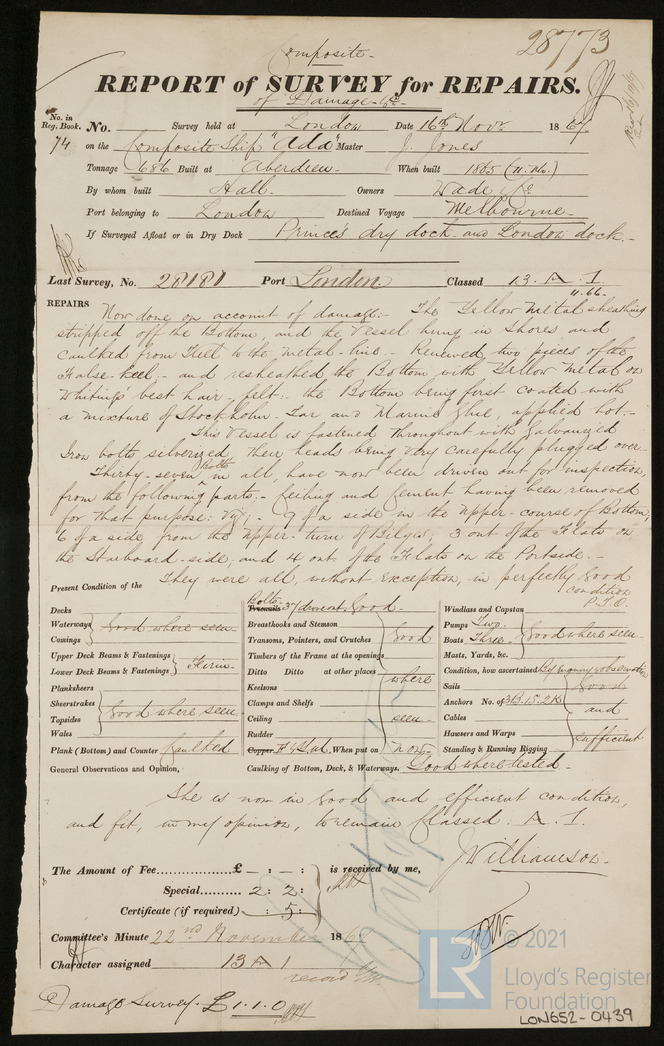 Composite
28773
REPORT of SURVEY for REPAIRS.
of Damage &c.
No. in Reg. Book. No. Survey held at London Date 16th Novr 1867
74 on the Composite Ship "Ada" Master J. Jones
Tonnage 686 Built at Aberdeen When built 1865 (11. Mo.)
By whom built Hall Owners Wade &c
Port belonging to London Destined Voyage Melbourne
If Surveyed Afloat or in Dry Dock Princes dry dock and London dock.
Last Survey, No. 28181 Port London Classed 13. A. 1.
11.66.
REPAIRS Now done on account of damage:- The Yellow Metal sheathing
stripped off the Bottom, and the Vessel hung in Shores and
caulked from Keel to the metal-line.- Renewed two pieces of the
False-keel,- and resheathed the Bottom with Yellow Metal on
Whiting's best hair-felt:- the Bottom being first coated with
a mixture of Stockholm-Tar and Marine Glue, applied hot.-
This Vessel is fastened throughout with Galvanized
Iron bolts, their heads being very carefully plugged over.
Thirty-seven Bolts in all, have now been driven out for inspection,
from the following parts:- Ceiling and Cement having been removed
for that purpose: Viz:- 9 of a side in the Upper-course of Bottom;
6 of a side from the Upper-turn of Bilges; 3 out of the Flats on
the Starboard-side; and 4 out of the Flats on the Portside.-
They were all, without exception, in perfectly Good
condition
P.T.O.
Present Condition of the
Decks
Waterways Good where seen
Comings
Upper Deck Beams & Fastenings
Lower Deck Beams & Fastenings Firm
Planksheers
Sheerstrakes
Topsides Good where seen
Wales
Plank (Bottom) and Counter Caulked
General Observations and Opinion,
Bolts
Treenails 37 driven out, Good
Breasthooks and Stemson
Transoms, Pointers, and Crutches Good
Timbers of the Frame at the openings
Ditto Ditto at other places where
Keelsons
Clamps and Shelfs
Ceiling seen
Rudder
Copper When put on now
Caulking of Bottom, Deck, & Waterways. Good where tested
Windlass and Capstan
Pumps Two
Boats Three Good where seen
Masts, Yards, &c.
Condition, how ascertained By enquiry & observation
Sails Good
Anchors No. of 3B. 1S. 2K and
Cables
Hawsers and Warps sufficient
Standing & Running Rigging
She is now in Good and efficient condition,
and fit, in my opinion, to remain Classed. A. 1.
J Williamson
The Amount of Fee £ - : - : is received by me,
Special 2 : 2 :
Certificate (if required) : 5 :
Committee's Minute 22nd November 1867
Character assigned 13 A 1
Damage Survey - £1.1.0
© 2021
LR
Lloyd's Register
Foundation
LON652-0439